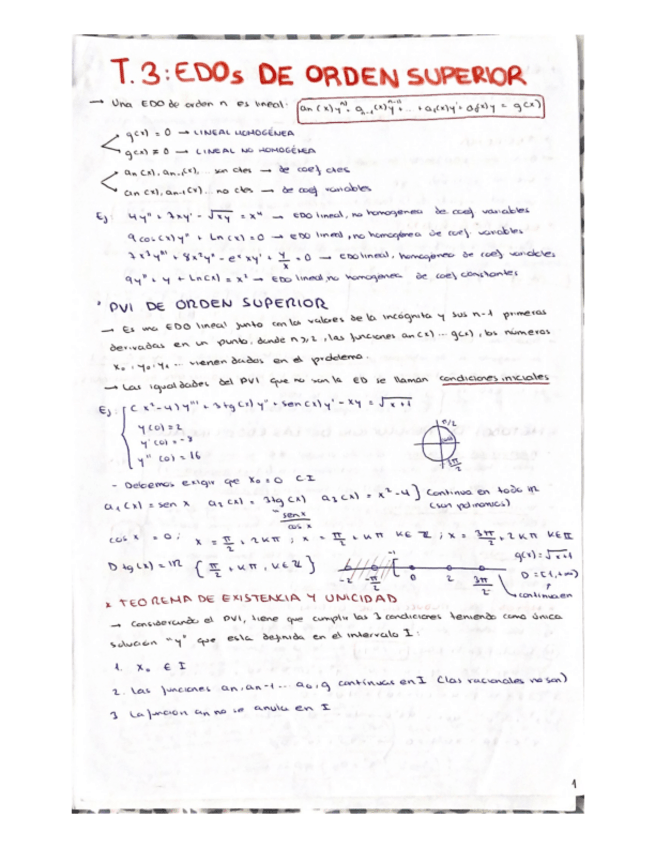 T.3: EDOs DE ORDEN SUPERIOR
→ Una EDO de orden n es lineal: an(x)y^(n) + a_{n-1}(x)y^(n-1) + ... + a1(x)y' + a0(x)y = g(x)
g(x) = 0 → LINEAL HOMOGÉNEA
g(x) ≠ 0 → LINEAL NO HOMOGÉNEA
an(x), an-1(x), ... son ctes → de coef ctes
an(x), an-1(x).. no ctes → de coef variables
Ej: 4y'' + 7xy' - √xy = x⁴ → EDO lineal, no homogenea de coef variables
9cos(x)y'' + Ln(x) = 0 → EDO lineal, no homogénea de coef. variables
7x³y''' + 8x²y'' - eˣxy' + y/x = 0 → EDO lineal, homogenea de coef variables
9y'' + y + Ln(x) = x² → EDO lineal, no homogenea de coef constantes
* PVI DE ORDEN SUPERIOR
→ Es una EDO lineal junto con los valores de la incógnita y sus n-1 primeras
derivadas en un punto, donde n≥2, las funciones an(x) ... g(x), los números
x0, y0, y1 ... vienen dados en el problema.
→ Las igualdades del PVI que no son la ED se llaman condiciones iniciales
Ej: { (x²-4)y''' + 3tg(x)y'' + sen(x)y' - xy = √x+1
y(0) = 2
y'(0) = -7
y''(0) = 16
π/2
3π/2
- Debemos exigir que x0 = 0 ∈ I
a1(x) = sen x a2(x) = 3tg(x) a3(x) = x²-4] Continua en todo IR
(son polinomios)
sen x / cos x
cos x = 0; x = π/2 + 2kπ; x = π/2 + kπ k∈Z; x = 3π/2 + 2kπ k∈Z
g(x) = √x+1
D tg(x) = IR { π/2 + kπ, k∈Z }
-2 -π/2 -1 0 2 3π/2
D = [-1, +∞)
continua en
* TEOREMA DE EXISTENCIA Y UNICIDAD
→ Considerando el PVI, tiene que cumplir las 3 condiciones teniendo como única
solución "y" que esta definida en el intervalo I:
1. x0 ∈ I
2. Las funciones an, an-1 ... a0, g continuas en I (las racionales no son)
3 La función an no se anula en I.
1